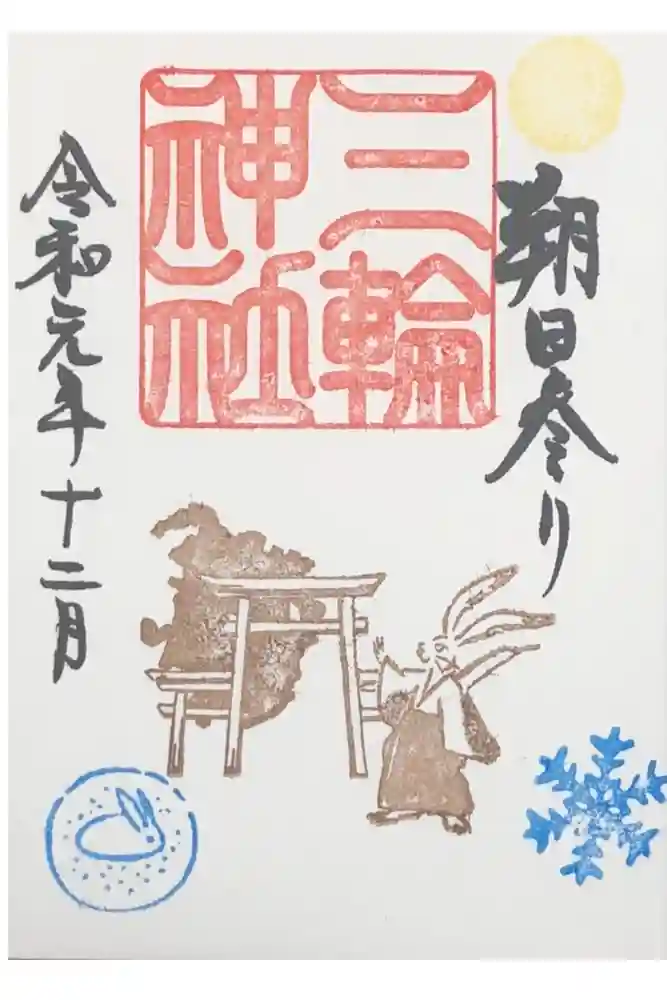 朔日参り
三輪
神社
令和元年十二月